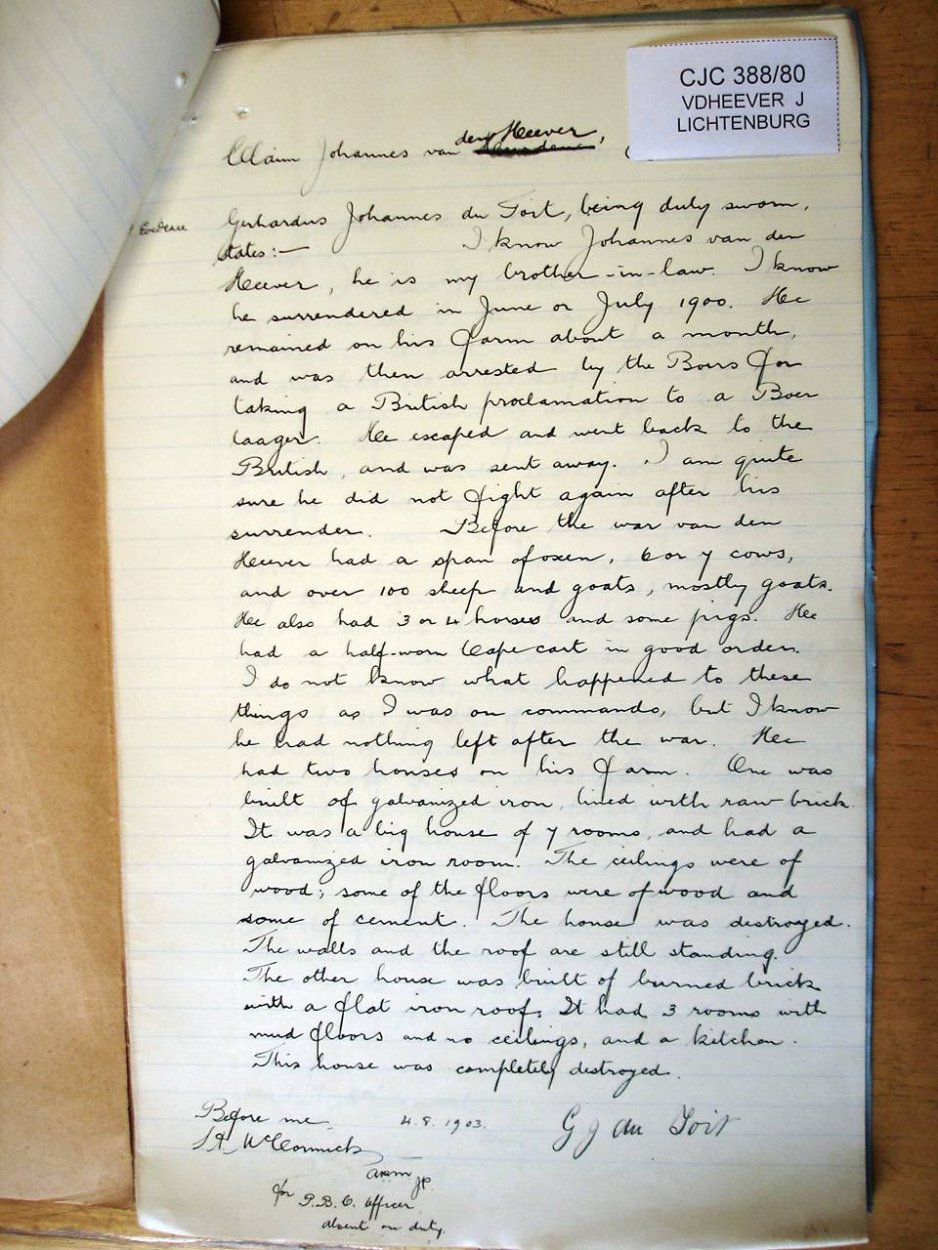 CJC 388/80
VDHEEVER J
LICHTENBURG
Claim Johannes van den Heever,
Evidence
Gerhardus Johannes du Toit, being duly sworn,
states:— I know Johannes van den
Heever, he is my brother-in-law. I know
he surrendered in June or July 1900. He
remained on his farm about a month,
and was then arrested by the Boers for
taking a British proclamation to a Boer
laager. He escaped and went back to the
British, and was sent away. I am quite
sure he did not fight again after his
surrender. Before the war van den
Heever had a span of oxen, 6 or 7 cows,
and over 100 sheep and goats, mostly goats.
He also had 3 or 4 horses and some pigs. He
had a half-worn Cape cart in good order.
I do not know what happened to these
things as I was on commando, but I know
he had nothing left after the war. He
had two houses on his farm. One was
built of galvanized iron, lined with raw brick
It was a big house of 7 rooms, and had a
galvanized iron room. The ceilings were of
wood; some of the floors were of wood and
some of cement. The house was destroyed.
The walls and the roof are still standing.
The other house was built of burned brick
with a flat iron roof. It had 3 rooms with
mud floors and no ceilings, and a kitchen.
This house was completely destroyed.
Before me, 4.8.1903. G J du Toit
McCormick
ARM JP
for P.B.C. Officer
absent on duty.